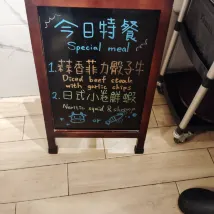 今日特餐
Special meal
1. 蒜香菲力骰子牛
Diced beef steack
with garlic chips
2. 日式小卷鮮蝦
squid &
or